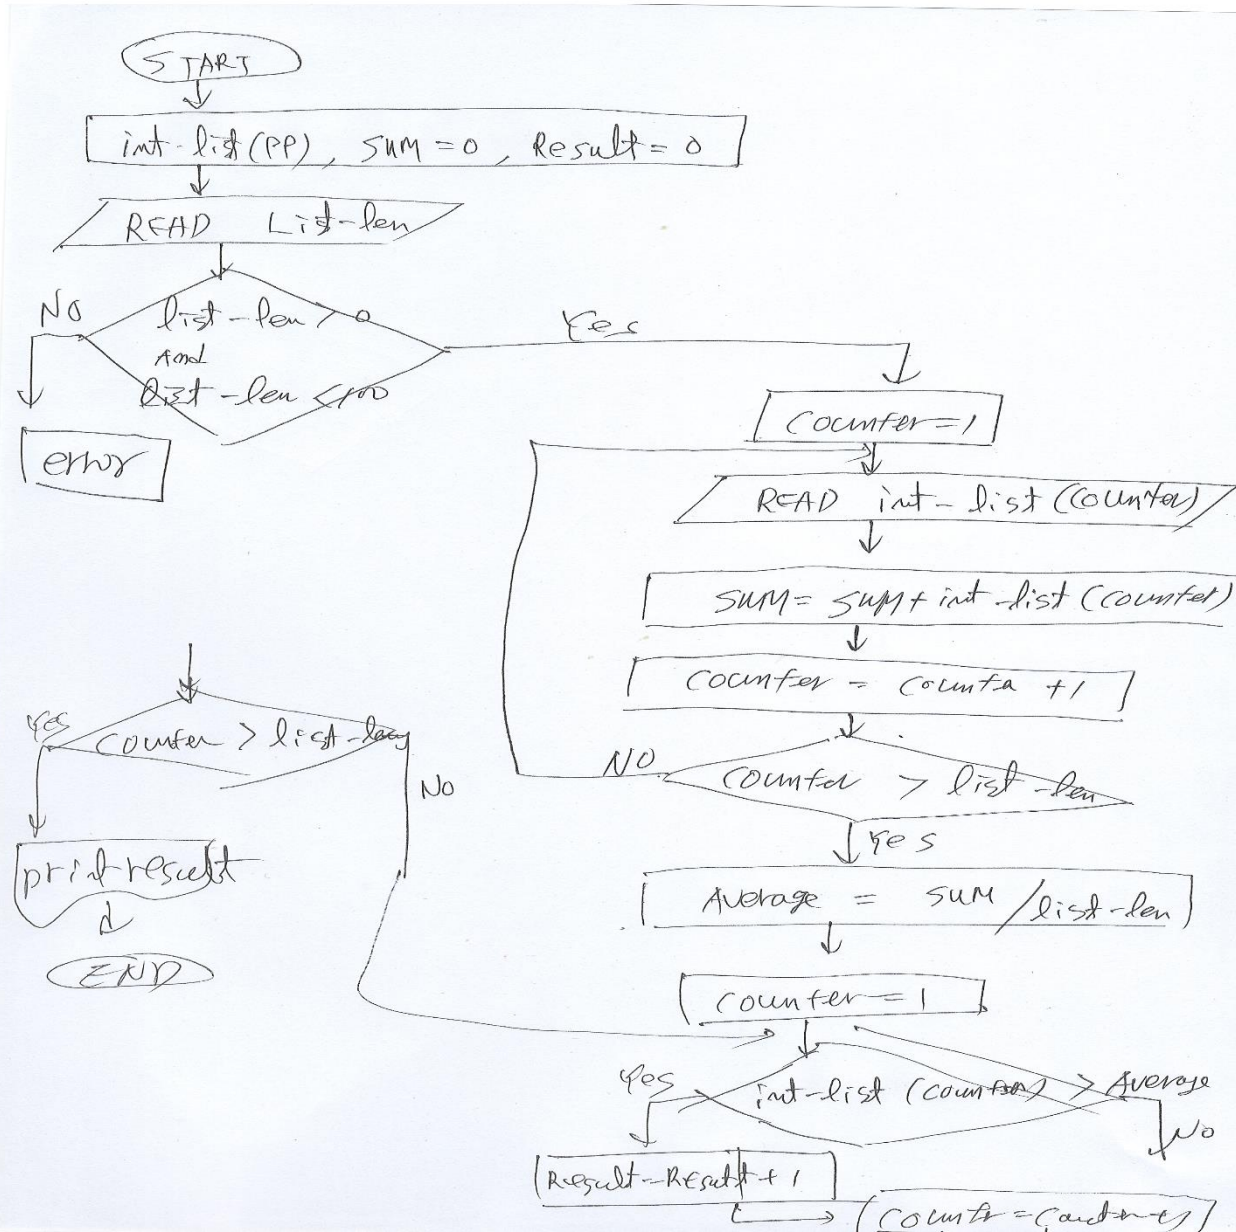 START
int-list(PP), SUM=0, Result=0
READ List-len
list-len > 0
And
list-len <100
NO
Yes
error
Counter=1
READ int-list(Counter)
SUM= SUM+int-list(Counter)
Counter = Counta +1
Counter > list-len
NO
Yes
Average = SUM /list-len
Counter=1
int-list (Counter) > Average
Yes
NO
Result=Result+1
Counter > list-len
Yes
NO
print result
END